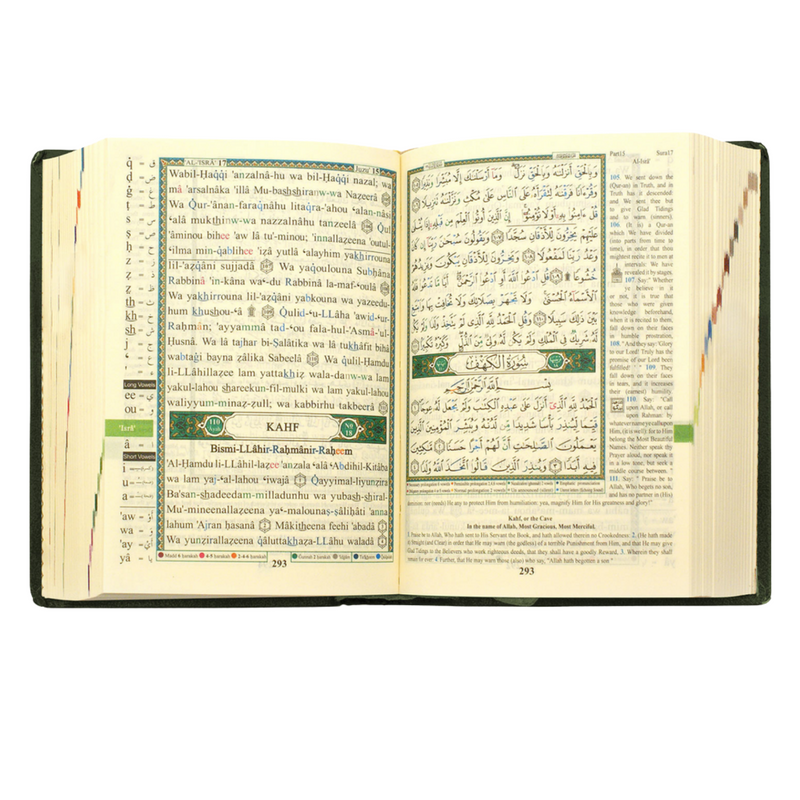 AL-'ISRÂ' 17
Juzu' 15
Wabil-Ḥaqqi 'anzalnâ-hu wa bil-Ḥaqqi nazal; wa
mâ 'arsalnâka 'illâ Mu-bashshiranw-wa Nazeerâ
Wa Qur-'ânan-faraqnâhu litaqra-'ahou ‘alan-nâsi
‘alâ mukthinw-wa nazzalnâhu tanzeelâ
'âminou bihee 'aw lâ tu'-minou; 'innallazeena 'outul-
‘ilma min-qablihee 'izâ yutlâ ‘alayhim yakhirrouna
lil-'azqâni sujjadâ Wa yaqoulouna Subḥâna
Rabbinâ 'in-kâna wa‘-du Rabbinâ la-maf-‘oulâ
Wa yakhirrouna lil-'azqâni yabkouna wa yazeedu-
hum khushou-‘â Quli-d‘u-LLâha 'awid-‘ur-
Raḥmân; 'ayyamma tad-‘ou fala-hul-'Asmâ-'ul-
Ḥusnâ. Wa lâ tajhar bi-Ṣalâtika wa lâ tukhâfit bihâ
wabtaġi bayna zâlika Sabeelâ Wa qulil-Ḥamdu
li-LLâhillazee lam yattakhiz wala-danw-wa lam
yakul-lahou shareekun-fil-mulki wa lam yakul-lahou
waliyyum-minaz-zull; wa kabbirhu takbeerâ
110
KAHF
No
18
Bismi-LLâhir-Raḥmânir-Raḥeem
'Al-Ḥamdu li-LLâhil-lazee 'anzala ‘alâ ‘Abdihil-Kitâba
wa lam yaj-‘al-lahou ‘iwajâ Qayyimal-liyunzira
Ba'san-shadeedam-mil-ladunhu wa yubash-shiral-
Mu'-mineenallazeena ya‘-malounaṣ-ṣâliḥâti 'anna
lahum 'Ajran ḥasanâ Mâkitheena feehi 'abadâ
Wa yunzirallazeena qâluttakhaza-LLâhu waladâ
293
Long Vowels
ee
ou
â
'Isrâ'
Short Vowels
i
u
a
'aw
wa
'ay
yâ
وَبِالْحَقِّ أَنزَلْنَاهُ وَبِالْحَقِّ نَزَلَ وَمَا أَرْسَلْنَاكَ إِلَّا مُبَشِّرًا وَنَذِيرًا
وَقُرْءَانًا فَرَقْنَاهُ لِتَقْرَأَهُ عَلَى النَّاسِ عَلَىٰ مُكْثٍ وَنَزَّلْنَاهُ تَنزِيلًا
قُلْ ءَامِنُوا بِهِ أَوْ لَا تُؤْمِنُوا إِنَّ الَّذِينَ أُوتُوا الْعِلْمَ مِن قَبْلِهِ إِذَا يُتْلَىٰ
عَلَيْهِمْ يَخِرُّونَ لِلْأَذْقَانِ سُجَّدًا وَيَقُولُونَ سُبْحَانَ رَبِّنَا إِن كَانَ
وَعْدُ رَبِّنَا لَمَفْعُولًا وَيَخِرُّونَ لِلْأَذْقَانِ يَبْكُونَ وَيَزِيدُهُمْ
خُشُوعًا قُلِ ادْعُوا اللَّهَ أَوِ ادْعُوا الرَّحْمَٰنَ أَيًّا مَّا تَدْعُوا فَلَهُ
الْأَسْمَاءُ الْحُسْنَىٰ وَلَا تَجْهَرْ بِصَلَاتِكَ وَلَا تُخَافِتْ بِهَا وَابْتَغِ
بَيْنَ ذَٰلِكَ سَبِيلًا وَقُلِ الْحَمْدُ لِلَّهِ الَّذِي لَمْ يَتَّخِذْ وَلَدًا وَلَمْ يَكُن
لَّهُ شَرِيكٌ فِي الْمُلْكِ وَلَمْ يَكُن لَّهُ وَلِيٌّ مِّنَ الذُّلِّ وَكَبِّرْهُ تَكْبِيرًا
سُورَةُ الْكَهْفِ
بِسْمِ اللَّهِ الرَّحْمَٰنِ الرَّحِيمِ
الْحَمْدُ لِلَّهِ الَّذِي أَنزَلَ عَلَىٰ عَبْدِهِ الْكِتَابَ وَلَمْ يَجْعَل لَّهُ عِوَجًا
قَيِّمًا لِّيُنذِرَ بَأْسًا شَدِيدًا مِّن لَّدُنْهُ وَيُبَشِّرَ الْمُؤْمِنِينَ الَّذِينَ
يَعْمَلُونَ الصَّالِحَاتِ أَنَّ لَهُمْ أَجْرًا حَسَنًا مَّاكِثِينَ
فِيهِ أَبَدًا وَيُنذِرَ الَّذِينَ قَالُوا اتَّخَذَ اللَّهُ وَلَدًا
Part15 Sura17
Al-Isrâ'
105. We sent down the
(Qur-an) in Truth, and in
Truth has it descended:
and We sent thee but
to give Glad Tidings
and to warn (sinners).
106. (It is) a Qur-an
which We have divided
(into parts from time to
time), in order that thou
mightest recite it to men at
intervals: We have
revealed it by stages.
107. Say: "Whether
ye believe in it
or not, it is true that
those who were given
knowledge beforehand,
when it is recited to them,
fall down on their faces
in humble prostration,
108. "And they say: 'Glory
to our Lord! Truly has the
promise of our Lord been
fulfilled!' " 109. They
fall down on their faces
in tears, and it increases
their (earnest) humility.
110. Say: "Call
upon Allah, or call
upon Rahman: by
whatever name ye call upon
Him, (it is well): for to Him
belong the Most Beautiful
Names. Neither speak thy
Prayer aloud, nor speak it
in a low tone, but seek a
middle course between."
111. Say: " Praise be to
Allah, Who begets no son,
and has no partner in (His)
dominion; nor (needs) He any to protect Him from humiliation: yea, magnify Him for His greatness and glory!"
Kahf, or the Cave
In the name of Allah, Most Gracious, Most Merciful.
1. Praise be to Allah, Who hath sent to His Servant the Book, and hath allowed therein no Crookedness: 2. (He hath made
it) Straight (and Clear) in order that He may warn (the godless) of a terrible Punishment from Him, and that He may give
Glad Tidings to the Believers who work righteous deeds, that they shall have a goodly Reward, 3. Wherein they shall
remain for ever: 4. Further, that He may warn those (also) who say, "Allah hath begotten a son":
293